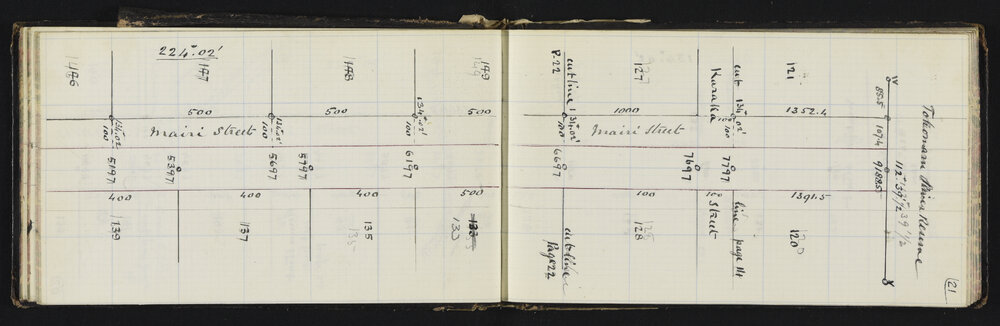 224°.02'
146
147
148
149
500
500
500
134°.02'
100
134°.02'
100
134°.02'
100
Mairi Street
5197
5397
5697
5797
6197
400
400
400
500
139
137
135
133
P.22
cut line
127
cut
Karaka
134°.02'
121
1000
1352.4
134°.02'
100
100
Mairi Street
6697
7697
7797
100
100
1391.5
cut line
Page 22
128
Street
line page 114
120
IV
885
1074
91885
112°.39'1/2
39 1/2
Reserve
21